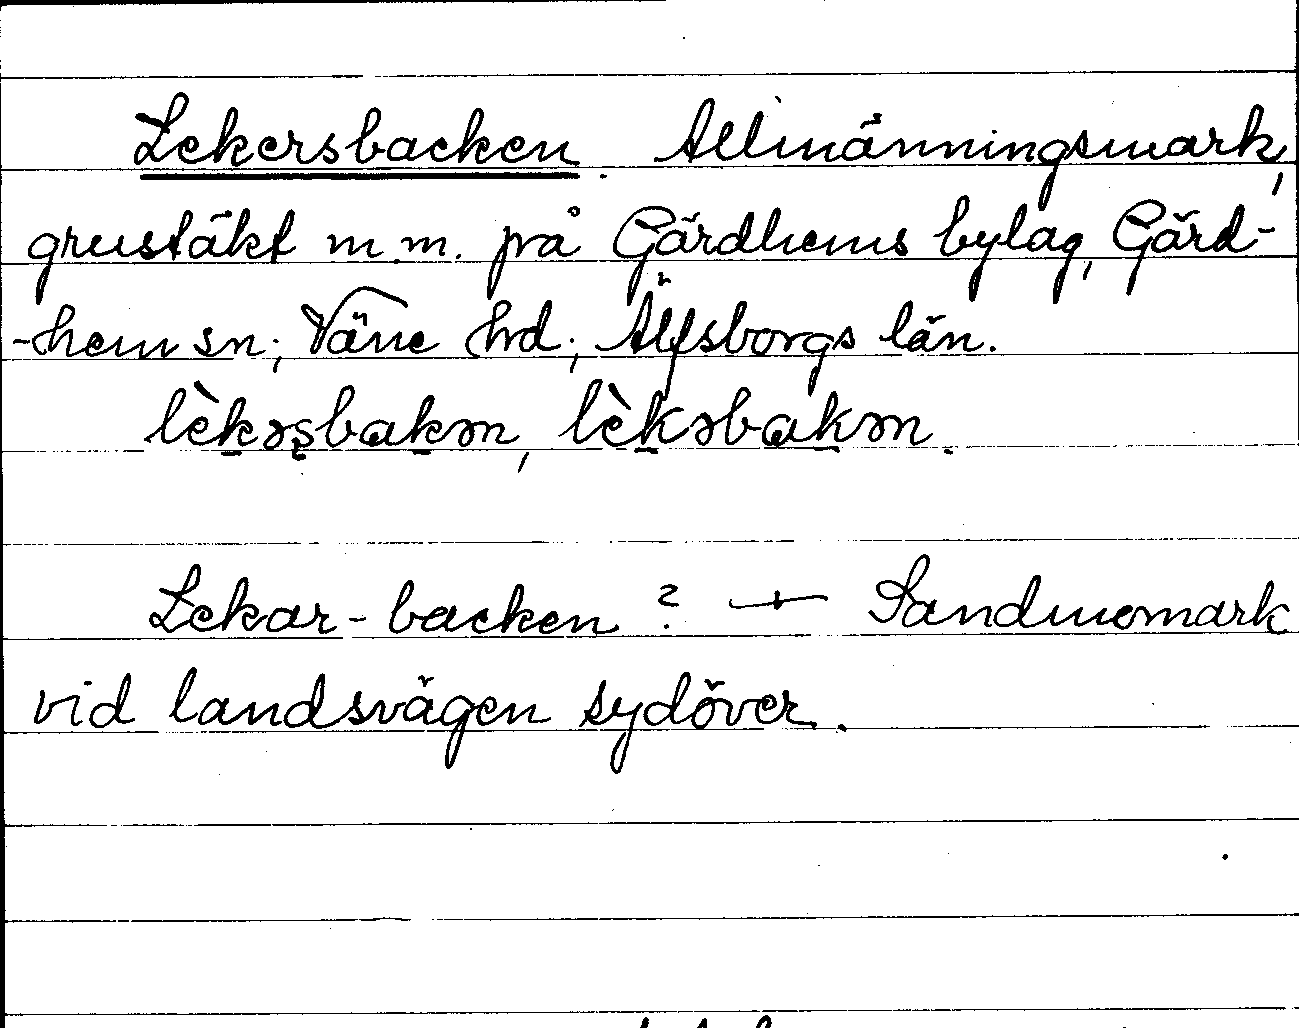 Lekersbacken. Allmänningsmark,
grustäkt m.m. på Gärdhems bylag, Gärd-
-hem sn, Väne hd, Älfsborgs län.
lèkəʂbakən, lèkəbakən.
Lekar-backen? — Sandmomark
vid landsvägen sydöver.